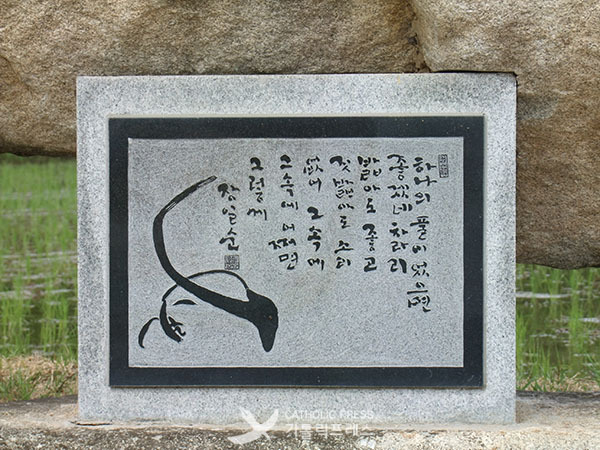 하나의 풀이었으면
좋겠네 차라리
밟아도 좋고
짓밟아도 소리
없어 그 속에
그 속에 어쩌면
그렇게
장일순
CATHOLIC PRESS
가톨릭프레스